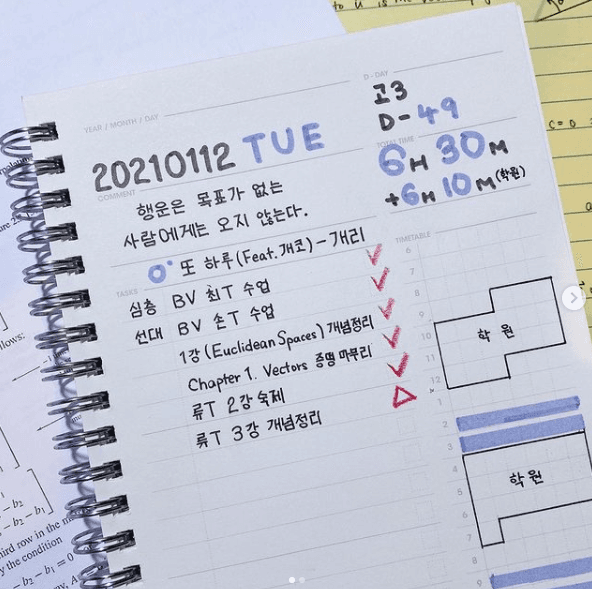 YEAR / MONTH / DAY
20210112 TUE
D-DAY
고3
D-49
TOTAL TIME
6H 30M
+6H 10M(학원)
COMMENT
행운은 목표가 없는
사람에게는 오지 않는다.
또 하루(Feat.개코)-개리
TASKS
심층 BV 최T 수업
선대 BV 손T 수업
1강(Euclidean Spaces) 개념정리
Chapter 1. Vectors 증명 마무리
류T 2강 숙제
류T 3강 개념정리
TIMETABLE
6
7
8
9
10
11
12
1
2
3
4
5
6
7
8
9
학원
학원
C = 0
llows:
- b₂
- b₂ - b₁
hird row in the m
y the condition
- b₂ - b₁ = 0